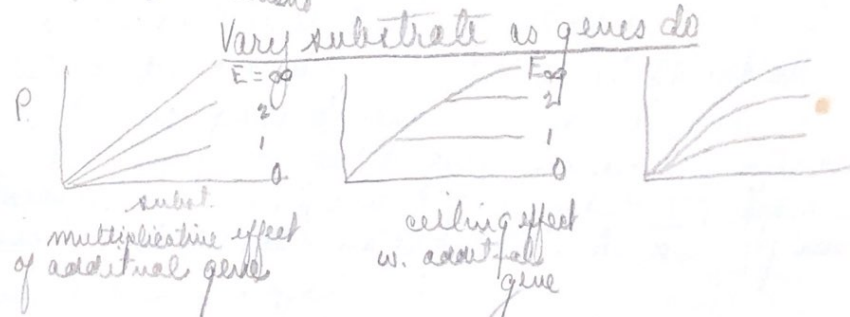 Vary substrate as genes do
P.
E = ∞
2
1
0
subst.
multiplicative effect
of additional gene
E ∞
2
1
0
ceiling effect
w. additnal
gene